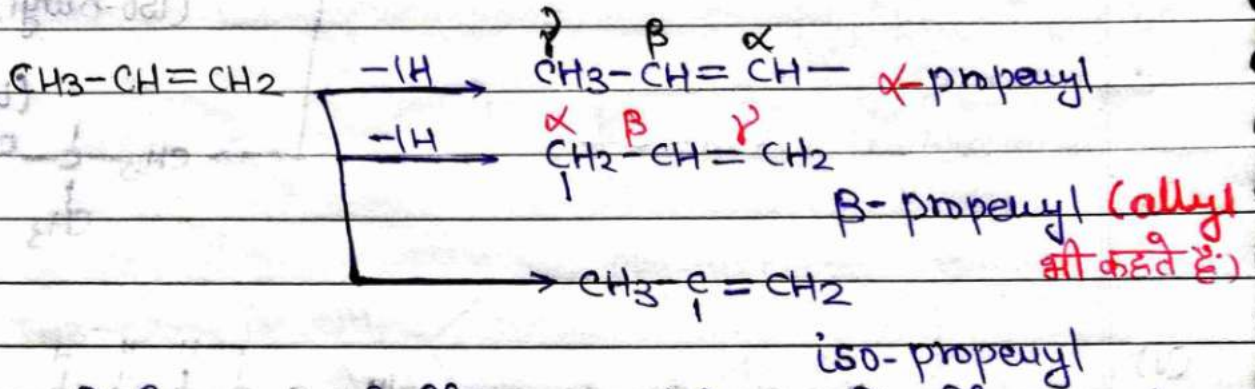 γ β α
CH3-CH=CH2 -1H CH3-CH=CH- α-propenyl
α β γ
-1H CH2-CH=CH2
β-propenyl (allyl
भी कहते हैं)
CH3-C=CH2
iso-propenyl